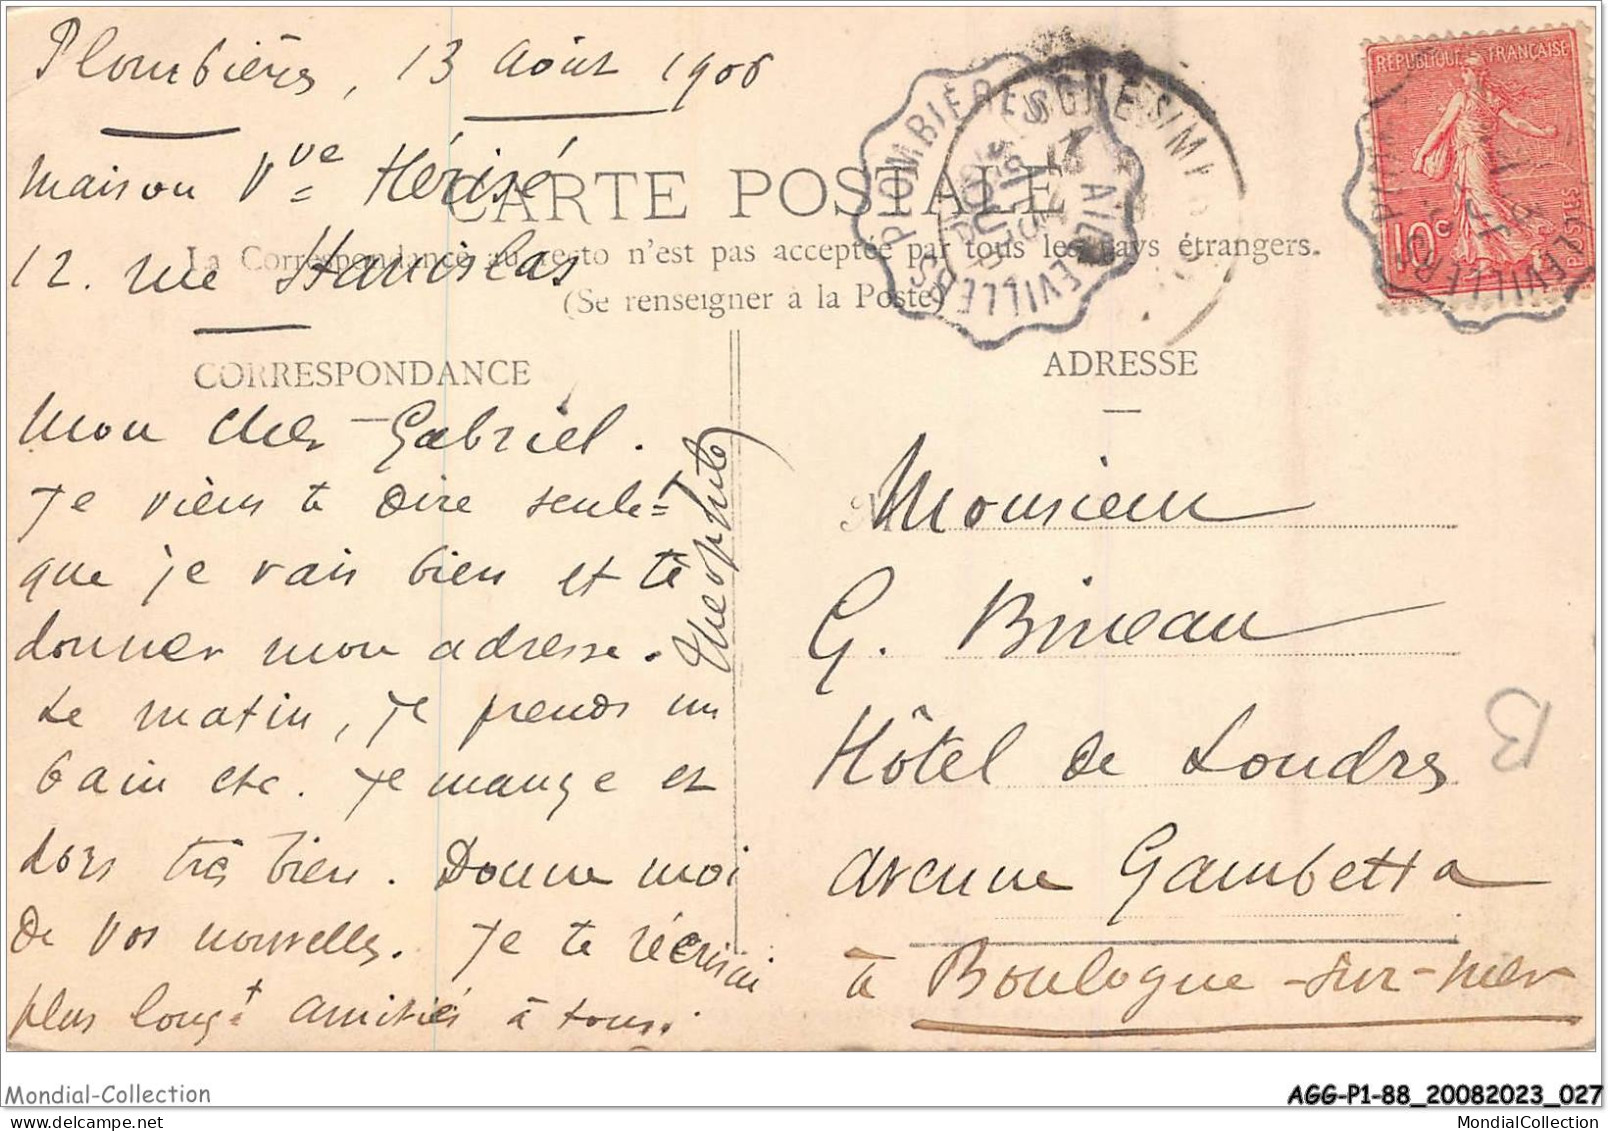 Plombières, 13 Août 1906
maison Vve Hérisé
12. rue Stanislas
CARTE POSTALE
La Correspondance au recto n'est pas acceptée par tous les pays étrangers.
(Se renseigner à la Poste)
CORRESPONDANCE
Mon cher Gabriel.
Je viens te dire seulet
que je vais bien et te
donner mon adresse.
Le matin, je prends un
bain etc. Je mange et
dors très bien. Donne moi
de vos nouvelles. Je te récrirai
plus longt amitiés à tous.
Théophile
ADRESSE
M
Monsieur
G. Bineau
Hôtel de Londres
avenue Gambetta
à Boulogne-sur-mer
B
REPUBLIQUE FRANÇAISE
10c
POSTES
PLOMBIERES
AILLEVILLERS
BOULOGNE S/MER
Mondial-Collection
AGG-P1-88_20082023_027
MondialCollection